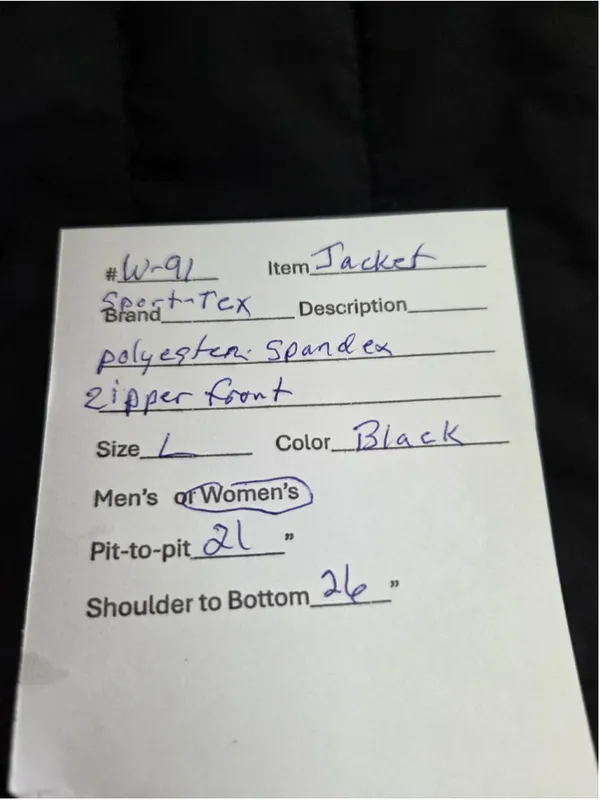 # W-91 Item Jacket
Brand Sport-Tex Description
polyester spandex
zipper front
Size L Color Black
Men's or Women's
Pit-to-pit 21 "
Shoulder to Bottom 26 "